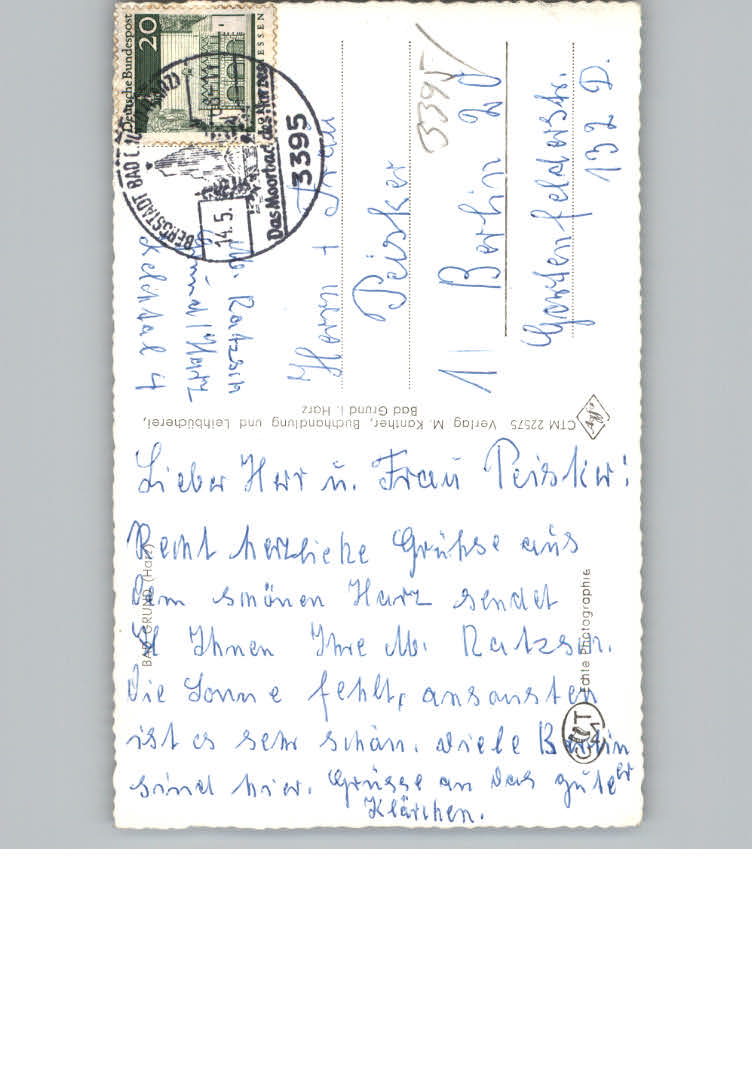 Deutsche Bundespost
20
ESSEN
BERGSTADT BAD
14.5.
Das Moorbad des Harzes
3395
M. Ratzsch
Grund/Harz
4
Herrn + Frau
Peisker
1 Berlin 20
Gartenfelderstr.
132 D.
3395
CTM 22575 Verlag M. Kanther, Buchhandlung und Leihbücherei,
Bad Grund i. Harz
Agfa
Lieber Herr u. Frau Peisker!
Recht herzliche Grühse aus
dem schönen Harz sendet
Ihnen Ihre M. Ratzsch.
Die Sonne fehlt, ansonsten
ist es sehr schön. Viele Berliner
sind hier. Grüsse an das gute
Klärchen.
BAD GRUND (Harz)
Echte Photographie